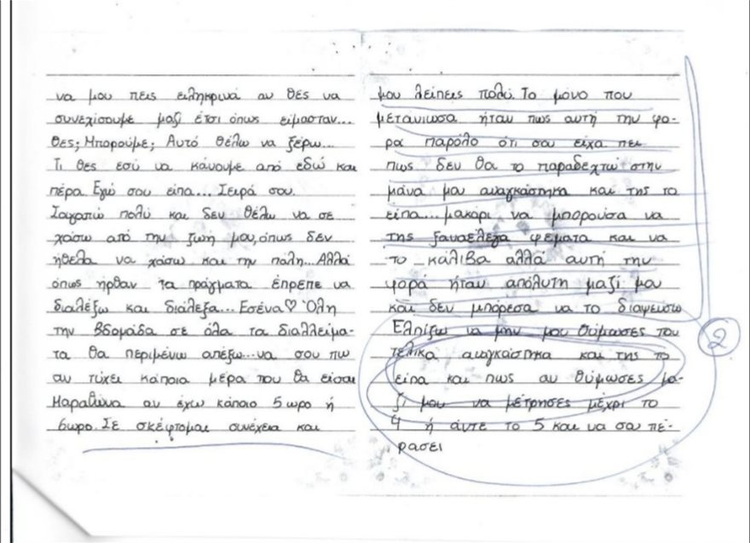 να μου πεις ειλικρινά αν θές να
συνεχίσουμε μαζί έτσι όπως είμασταν...
θες; Μπορούμε; Αυτό θέλω να ξέρω...
Τι θες εσύ να κάνουμε από εδώ και
πέρα. Εγώ σου είπα... Σειρά σου.
Σαγαπώ πολύ και δεν θέλω να σε
χάσω από την ζωή μου, όπως δεν
ήθελα να χάσω και την πάλη... Αλλά
όπως ήρθαν τα πράγματα έπρεπε να
διαλέξω και διάλεξα... Εσένα♡ Όλη
την βδομάδα σε όλα τα διαλλείμα-
τα θα περιμένω απέξω...να σου πω
αν τύχει κάποια μέρα που θα είσαι
Μαραθώνα αν έχω κάποιο 5ωρο ή
6ωρο. Σε σκέφτομαι συνέχεια και
μου λείπεις πολύ. Το μόνο που
μετάνιωσα ήταν πως αυτή την φο-
ρα παρόλο ότι σου είχα πει
πως δεν θα το παραδεχτώ στην
μάνα μου αναγκάστηκα και της το
είπα... μακάρι να μπορούσα να
της ξαναέλεγα ψέματα και να
το κάλιβα αλλά αυτή την
φορά ήταν απόλυτη μαζί μου
και δεν μπόρεσα να το διαψεύσω
Ελπίζω να μην μου θύμωσες που
τελικά αναγκάστηκα και της το
είπα και πως αν θύμωσες μα-
ζί μου να μέτρησες μέχρι το
4 ή άντε το 5 και να σου πέ-
ρασει
2